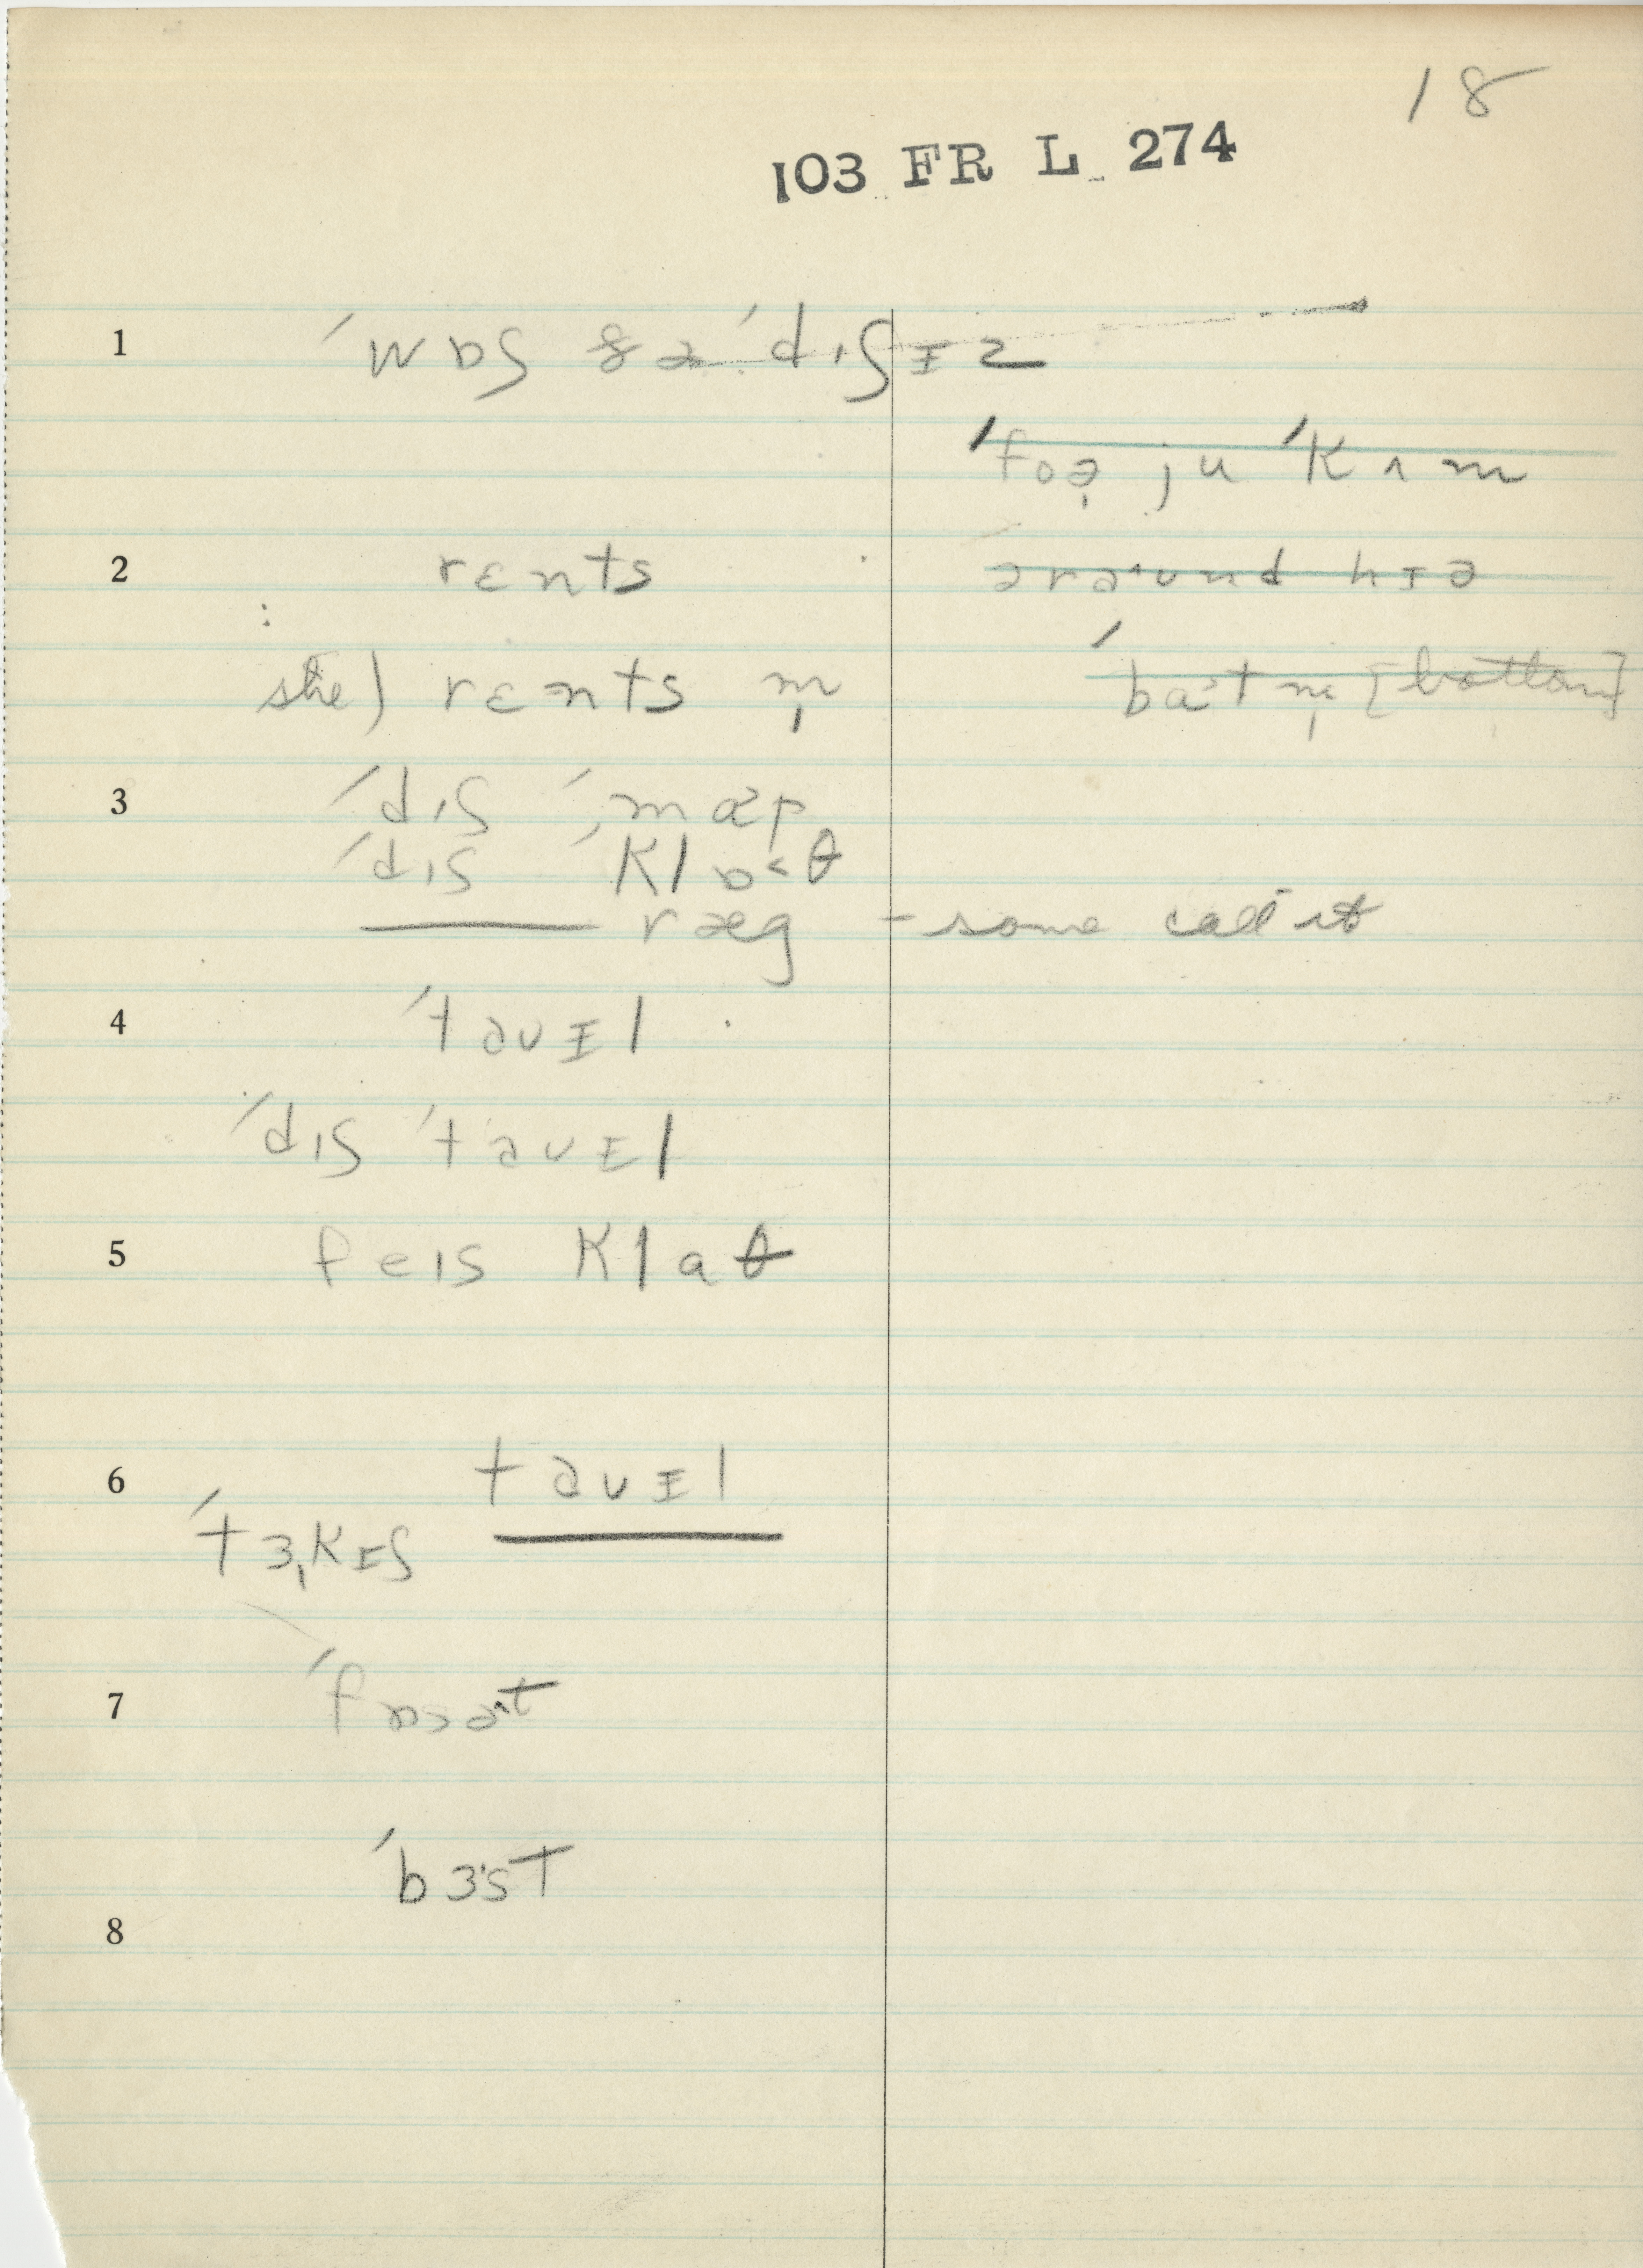 18
103 FR L 274
1 ˈwɒʃ ðə ˈdɪʃɪz
ˈfoə̣ ju ˈkʌm
2 rɛnts əraʊnd hɪə
she) rɛnts m̩ ˈbatm̩ [bottom]
3 ˈdɪʃ ˈmæp
ˈdɪs ˈklɒ<θ
ræg - some call it
4 ˈtaʊɪl
ˈdɪʃ ˈtaʊɪl
5 feɪs klaθ
6 taʊɪl
ˈtɜ̩kɪʃ
7
ˈbɜst
8